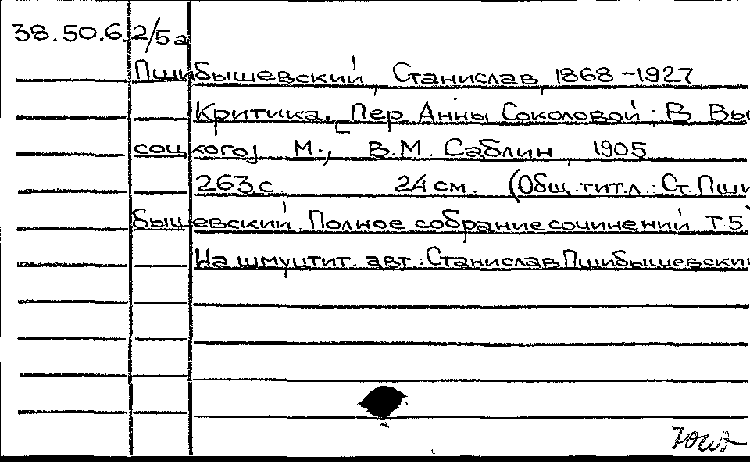 38.50.6.2/5а
Пшибышевский, Станислав, 1868-1927
Критика. [Пер. Анны Соколовой; В. Вы
соцкого] М., В.М. Саблин, 1905
263 с. 24 см. (Общ. тит. л.: Ст. Пши
бышевский. Полное собрание сочинений. Т. 5
На шмуцтит. авт.: Станислав Пшибышевский